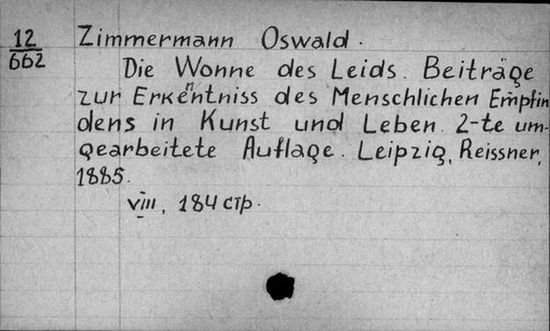 12
662
Zimmermann Oswald.
Die Wonne des Leids. Beiträge
zur Erkenntniss des Menschlichen Empfin
dens in Kunst und Leben. 2-te um-
gearbeitete Auflage. Leipzig, Reissner,
1885.
viii, 184 стр.